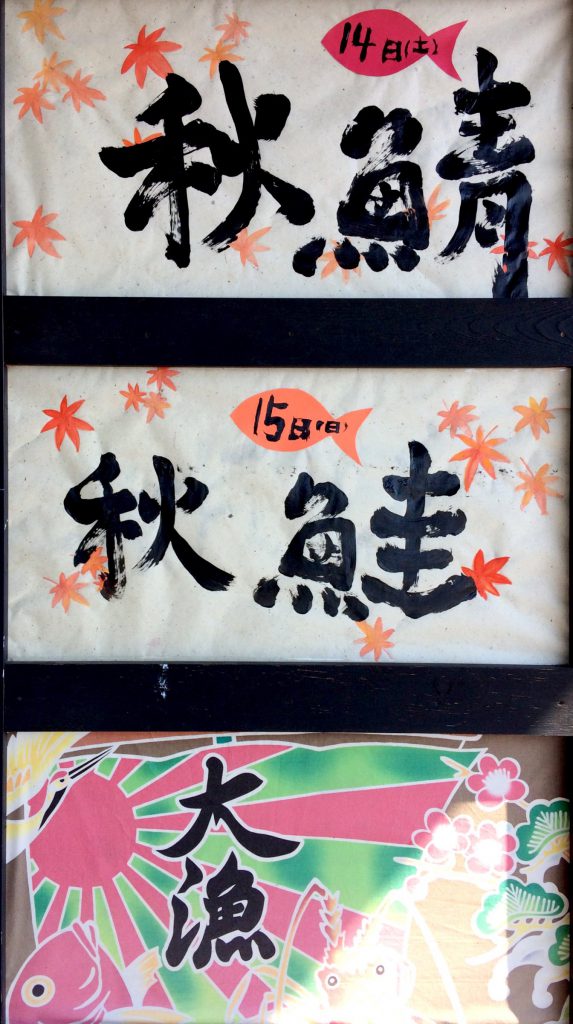 14日(土)
秋鯖
15日(日)
秋鮭
大漁